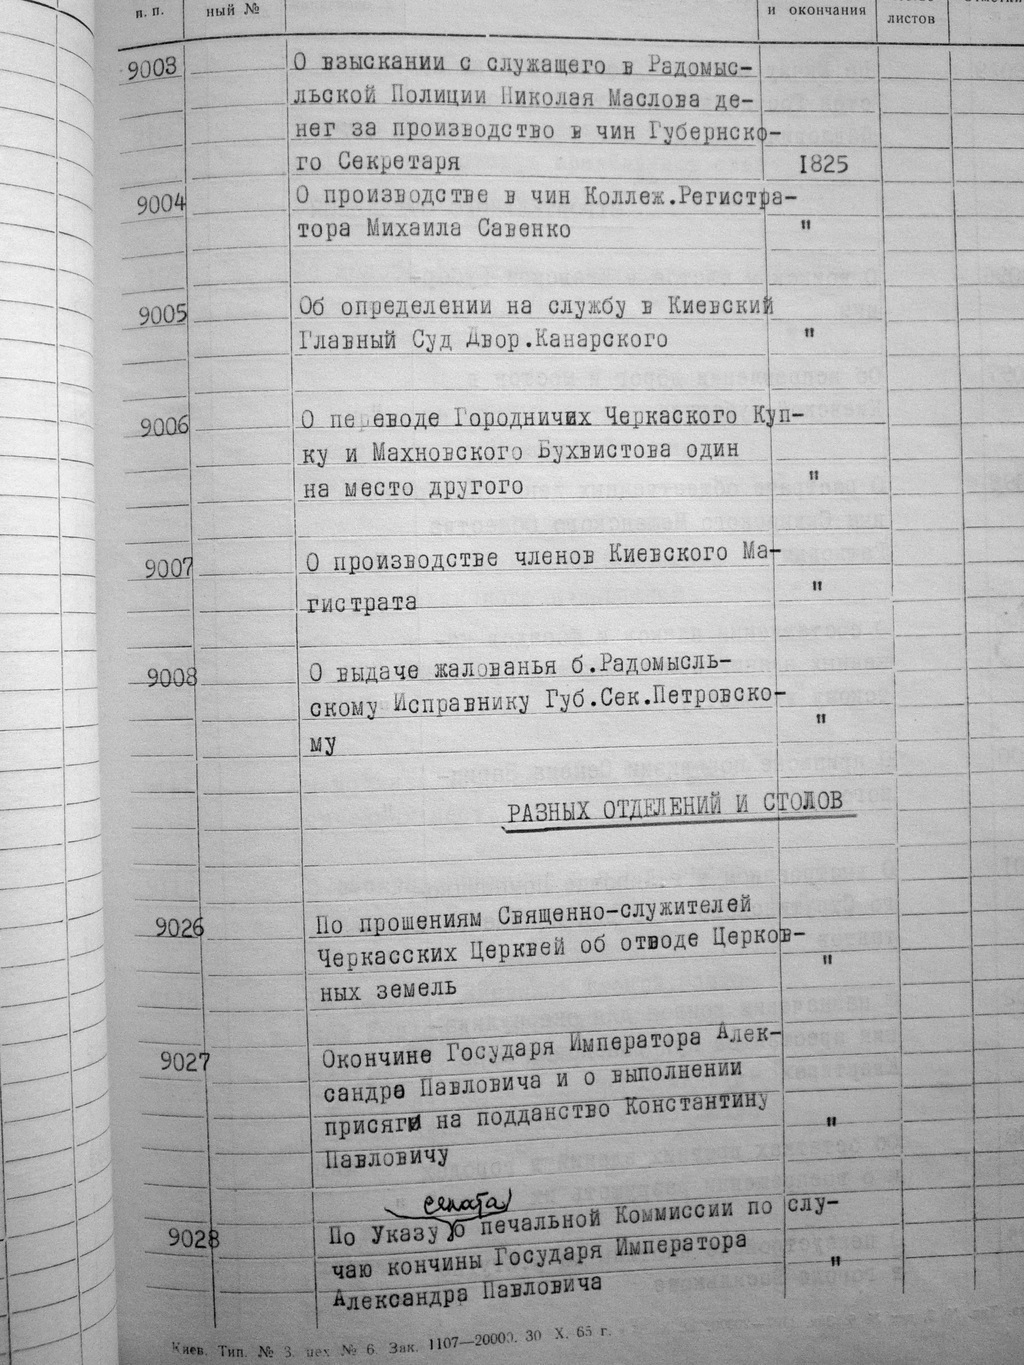 п. п.
ный №
и окончания
листов
9003
О взыскании с служащего в Радомыс-
льской Полиции Николая Маслова де-
нег за производство в чин Губернско-
го Секретаря
1825
9004
О производстве в чин Коллеж.Регистра-
тора Михаила Савенко
"
9005
Об определении на службу в Киевский
Главный Суд Двор.Канарского
"
9006
О переводе Городничих Черкаского Куп-
ку и Махновского Бухвистова один
на место другого
"
9007
О производстве членов Киевского Ма-
гистрата
"
9008
О выдаче жалованья б.Радомысль-
скому Исправнику Губ.Сек.Петровско-
му
"
РАЗНЫХ ОТДЕЛЕНИЙ И СТОЛОВ
9026
По прошениям Священно-служителей
Черкасских Церквей об отводе Церков-
ных земель
"
9027
Окончине Государя Императора Алек-
сандра Павловича и о выполнении
присяги на подданство Константину
Павловичу
"
сената
9028
По Указу о печальной Коммиссии по слу-
чаю кончины Государя Императора
Александра Павловича
"
Киев. Тип. № 3. цех № 6. Зак. 1107—20000. 30 X. 65 г.